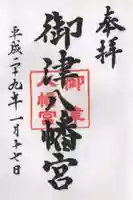 奉拝
御津八幡宮
平成二十九年一月十七日